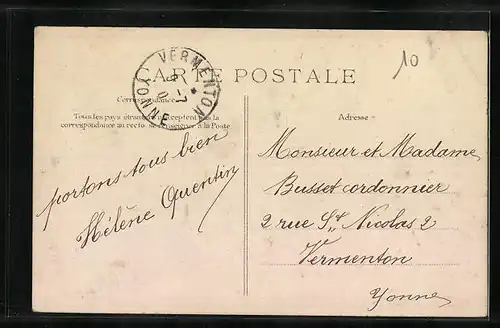 10
VERMENTON
YONNE
CARTE POSTALE
Correspondance
Tous les pays étrangers n'acceptent pas la
correspondance au recto, se renseigner à la Poste
Adresse
portons tous bien
Hélène Quentin
Monsieur et Madame
Busset cordonnier
2 rue St Nicolas 2
Vermenton
Yonne